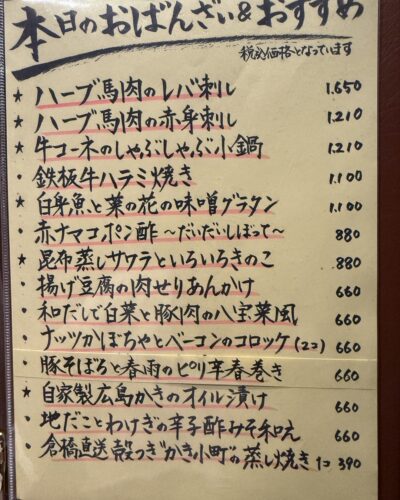 本日のおばんざい&おすすめ
税込価格となっています
★ ハーブ馬肉のレバ刺し 1.650
★ ハーブ馬肉の赤身刺し 1.210
★ 牛コーネのしゃぶしゃぶ小鍋 1.210
・鉄板牛ハラミ焼き 1.100
★ 白身魚と菜の花の味噌グラタン 1.100
・赤ナマコポン酢 〜だいだいしぼって〜 880
★ 昆布蒸しサワラといろいろきのこ 880
・揚げ豆腐の肉せりあんかけ 660
・和だしで白菜と豚肉の八宝菜風 660
・ナッツかぼちゃとベーコンのコロッケ(2コ) 660
・豚そぼろと春雨のピリ辛春巻き 660
★ 自家製広島かきのオイル漬け 660
・地だことわけぎの辛子酢みそ和え 660
・倉橋直送 殻つき"かき小町"の蒸し焼き 1コ 390